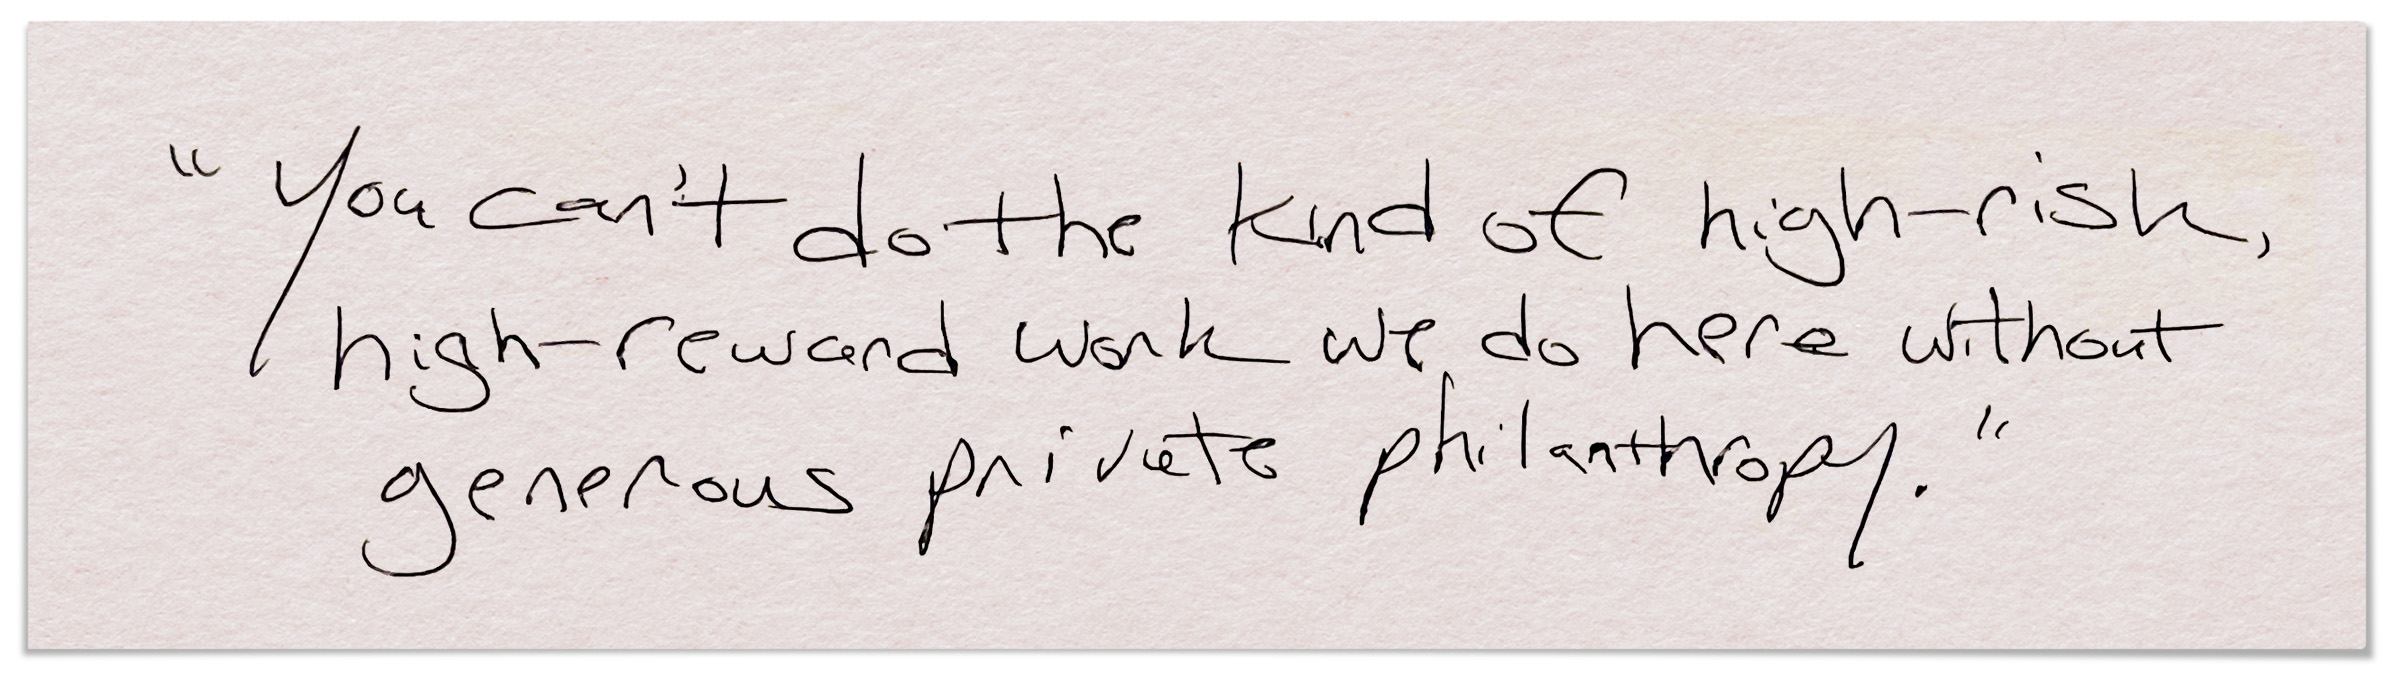 “You can't do the kind of high-risk,
high-reward work we do here without
generous private philanthropy.”